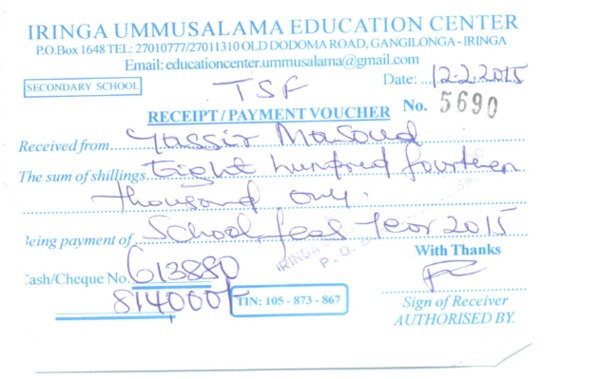 IRINGA UMMUSALAMA EDUCATION CENTER
P.O.Box 1648 TEL: 27010777/27011310 OLD DODOMA ROAD, GANGILONGA - IRINGA
Email: educationcenter.ummusalama@gmail.com
SECONDARY SCHOOL TSF Date: 12.2.2015
RECEIPT/PAYMENT VOUCHER No. 5690
Received from Yassir Masoud
The sum of shillings Eight hundred fourteen
thousand only.
Being payment of School fees Year 2015
With Thanks
Cash/Cheque No. 613880
814000/= TIN: 105 - 873 - 867
Sign of Receiver
AUTHORISED BY.
IRINGA
P. O.